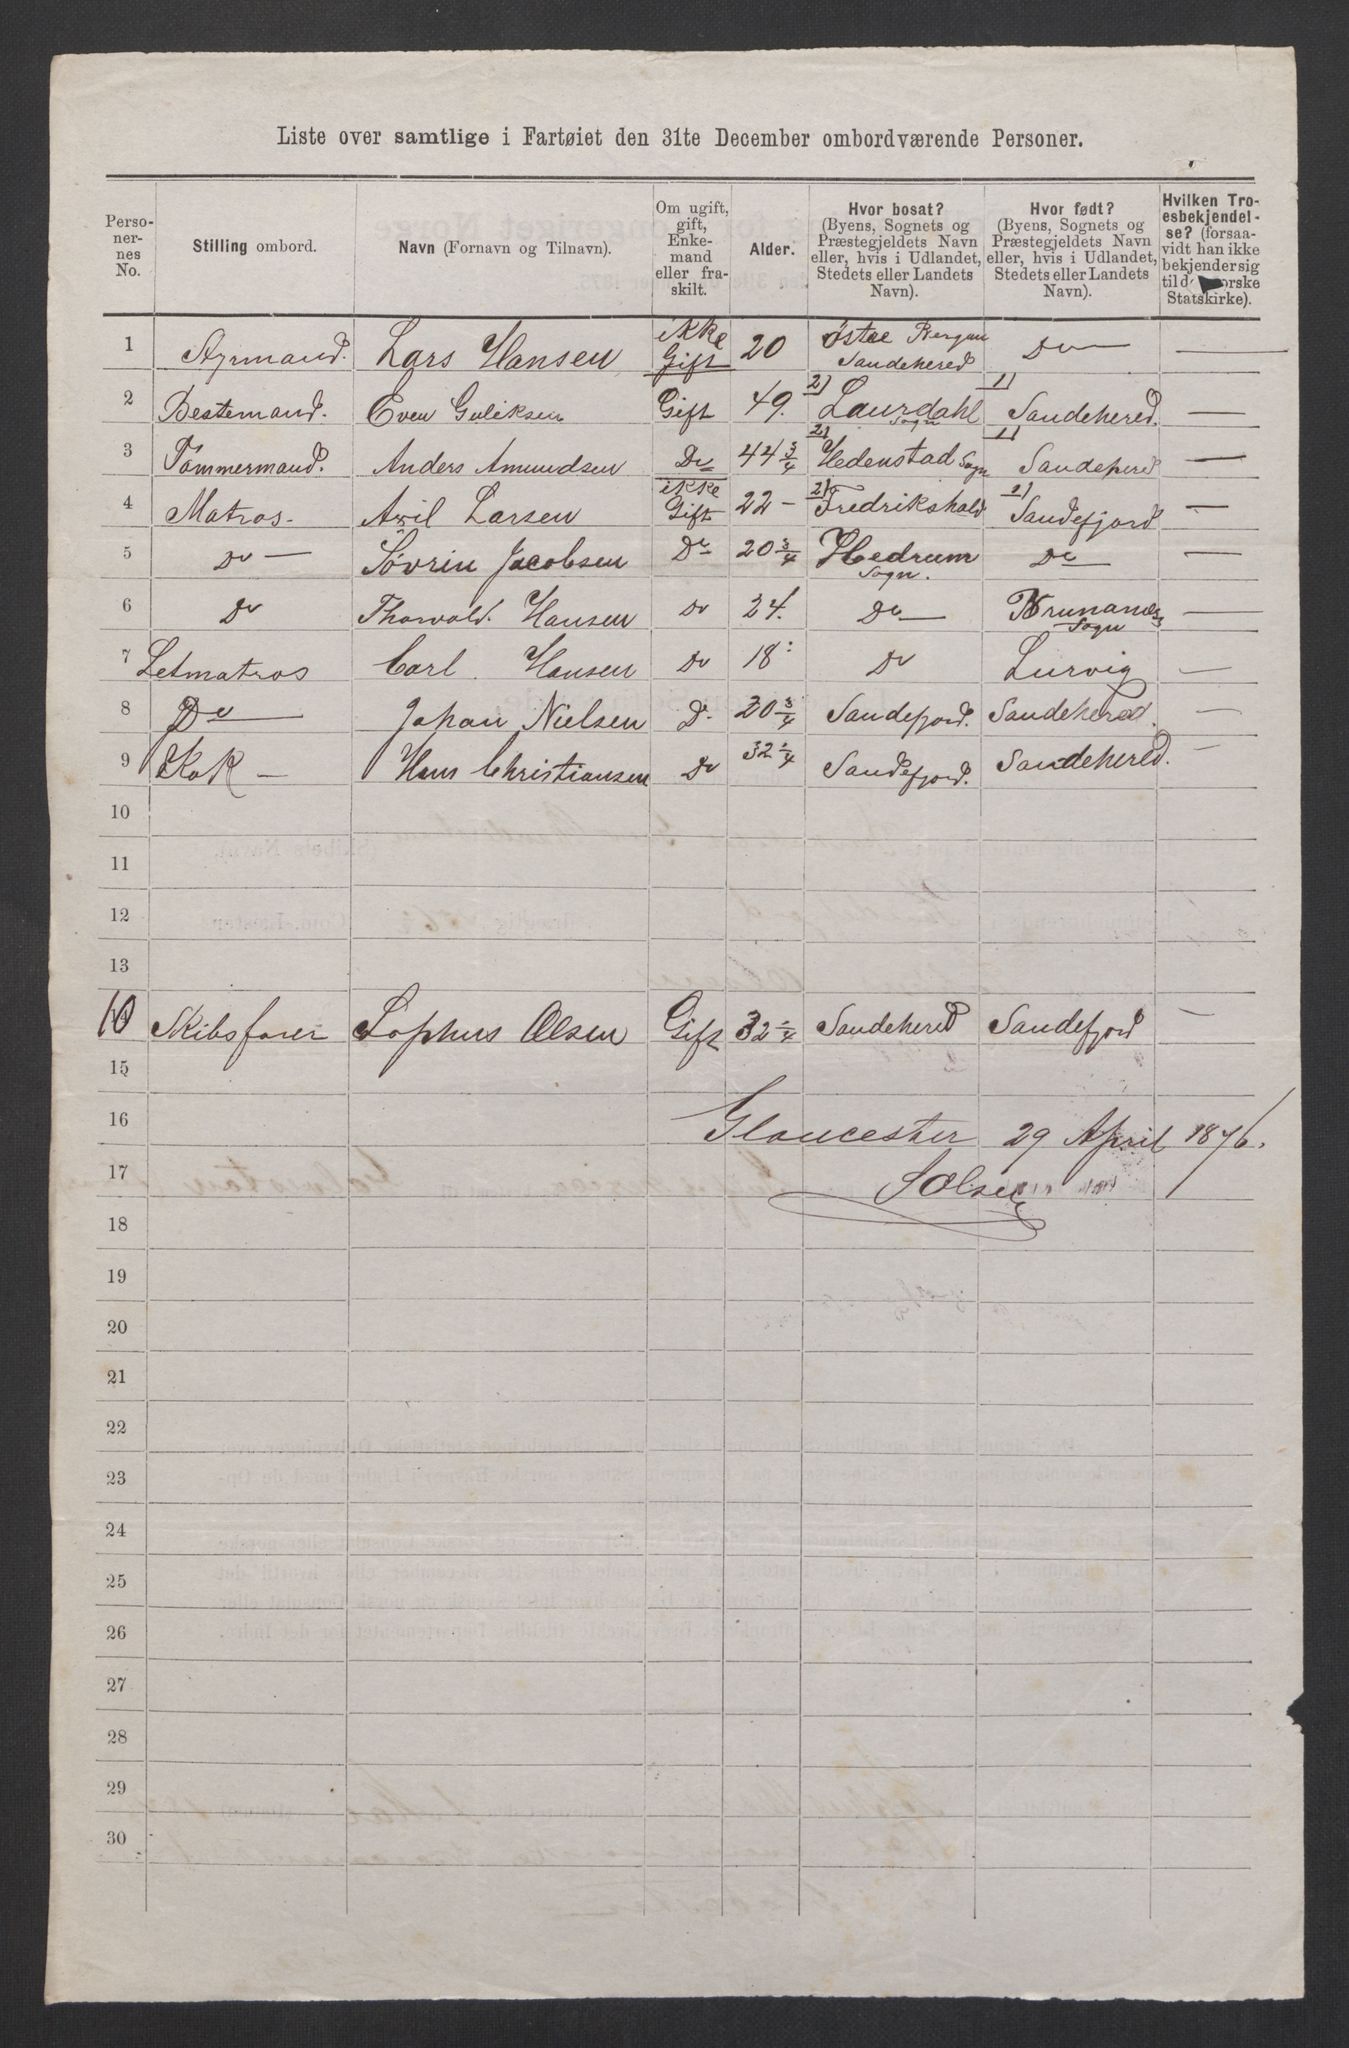 Liste over samtlige i Fartøiet den 31te December ombordværende Personer.
Perso-nernes No. | Stilling ombord. | Navn (Fornavn og Tilnavn). | Om ugift, gift, Enkemand eller fraskilt. | Alder. | Hvor bosat? (Byens, Sognets og Præstegjeldets Navn eller, hvis i Udlandet, Stedets eller Landets Navn). | Hvor født? (Byens, Sognets og Præstegjeldets Navn eller, hvis i Udlandet, Stedets eller Landets Navn). | Hvilken Troesbekjendelse? (forsaavidt han ikke bekjender sig til den norske Statskirke).
1 Styrmand. Lars Hansen ikke Gift 20 Østre Sandehered Do —
2 Bestemand. Even Guliksen Gift 49. 2) Laurdahl Sogn 1) Sandehered. —
3 Tømmermand. Anders Amundsen Do 44 3/4 2) Hedenstad Sogn 1) Sandehered —
4 Matros. Axil Larsen ikke Gift 22 - 2) Fredrikshald 2) Sandefjord —
5 Do — Søvrin Jacobsen Do 20 3/4 Hedrum Sogn. Do —
6 Do Thorvald. Hansen Do 24. Do — Brunanæs Sogn —
7 Letmatros Carl. Hansen Do 18 Do Lurvig —
8 Do — Johan Nielsen Do 20 3/4 Sandefjord. Sandehered. —
9 Kok — Hans Christiansen Do 32 2/4 Sandefjord. Sandehered. —
10
11
12
13
10 Skibsfører Sophus Olsen Gift 32 2/4 Sandehered Sandefjord —
15
16 Gloucester 29 April 1876.
17 S Olsen
18
19
20
21
22
23
24
25
26
27
28
29
30